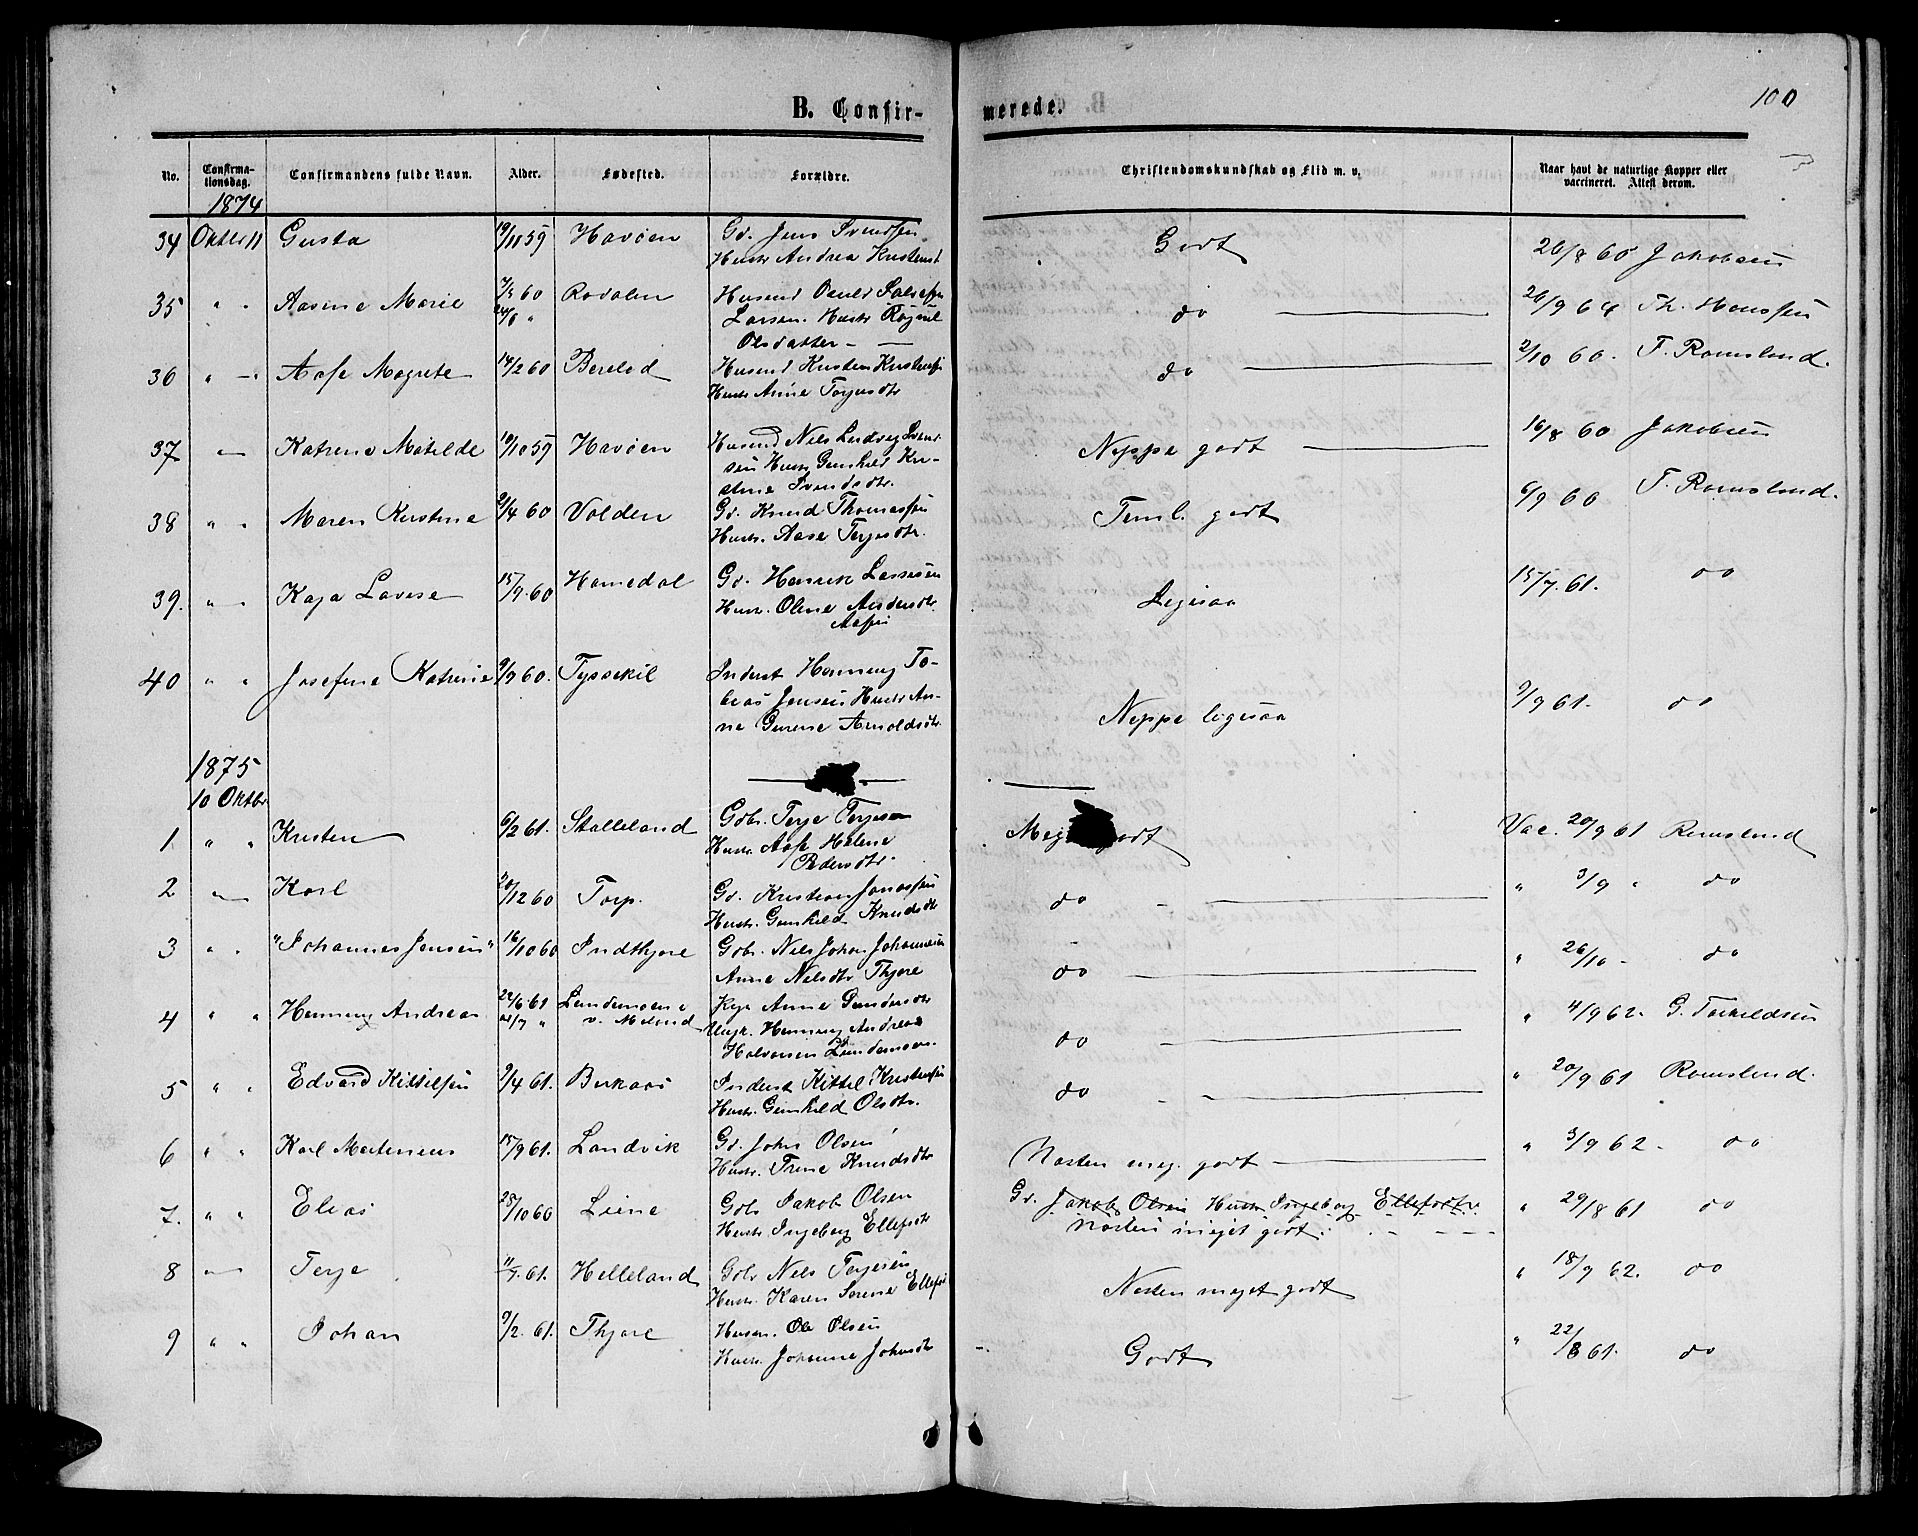 B. Confirmerede.
100
No.
Confirmationsdag.
Confirmandens fulde Navn.
Alder.
Fødested.
Forældre.
Christendomskundskab og Flid m. v.
Naar havt de naturlige Kopper eller vaccineret. Attest derom.
1874
34 Oktbr 11 Gusta 19/11 59 Havøen Gd. Jens Svendsen Hustr Andrea Kristensd Godt 26/8 60 Jakobsen
35 " " Aasine Marie 7/5 60 Rodalen Husmd Larsen. Hustr Ragnil Olsdatter - do 26/9 64 Th. Hanssen
36 " - Aase Magrete 14/2 60 Berelad Husmd Kristen Kristensen Hustr Anne Torjusdtr do 2/10 60. F. Romsland.
37 - Katrine Matilde 10/10 59 Havøen Husmd Nels Ludvig Svendsen Hustr Gunhild Kristine Svendsdtr. Neppe godt 16/8 60 Jakobsen
38 " " Maren Kirstine 2/4 60 Volden Gd. Knud Thomassen Hustr. Aase Terjesdtr. Teml. godt 6/9 60 F. Romsland.
39. " Kaja Lovise 15/9 60 Homedal Gd. Henrik Lassesen Hustr. Oline Andersdtr. Aasen Ligesaa 15/7 61. do
40 " " Josefine Katrine 9/9 60. Tyssekil Inderst Henning Tobias Jensen Hustr Anne Gurine Arnoldsdtr. Neppe ligesaa 9/9 61. do
1875
10 Oktbr
1 " " Kristen 6/2 61. Stalleland Gdbr. Terje Terjesen Hustr. Aase Helene Pedersdtr. Meget godt Vac. 20/9 61 Romsland
2 " Karl 20/12 60 Torp. Gd. Kristian Jonassen Hustr. Gunhild Knudsdtr do " 3/9 " do
3 " " "Johannes Jensen" 16/10 60 Indthjore Gdbr. Nils Johan Johannesen Anne Nilsdtr Thjore do " 26/10 - do
4 " " Henning Andreas 22/6 61 Landemoene v. Meland Pige Anne Gundersdtr Ungk. Henning Andreas Halvorsen do " 4/9 62. G. Torkildsen
5 " " Edvard Kittilsen 9/4 61. Birkaas Inderst Kittel Kristensen Hustr. Gunhild Olsdtr. do " 20/9 61 Romsland.
6 " " Karl Martinius 15/9 61. Landvik Gd. John Olsen Hustr. Trine Knudsdtr Næsten meg. godt " 3/9 62 - do
7. " " Elias 25/10 60 Liene Gdbr Jakob Olsen Hustr Ingeborg Ellefsdtr Gd. Jakob Olsen Hustr Ingeborg Ellefsdtr. Næsten meget godt. " 29/8 61 do
8 " Terje 11/7 61. Helleland Gdbr Nels Terjesen Hustr. Karen Serene Ellefsd Næsten meget godt " 18/9 62. do
9 " " Johan 9/2. 61. Thjore Husm. Ole Olsen Hustr. Johanne Johnsdtr Godt " 22/8 61. do